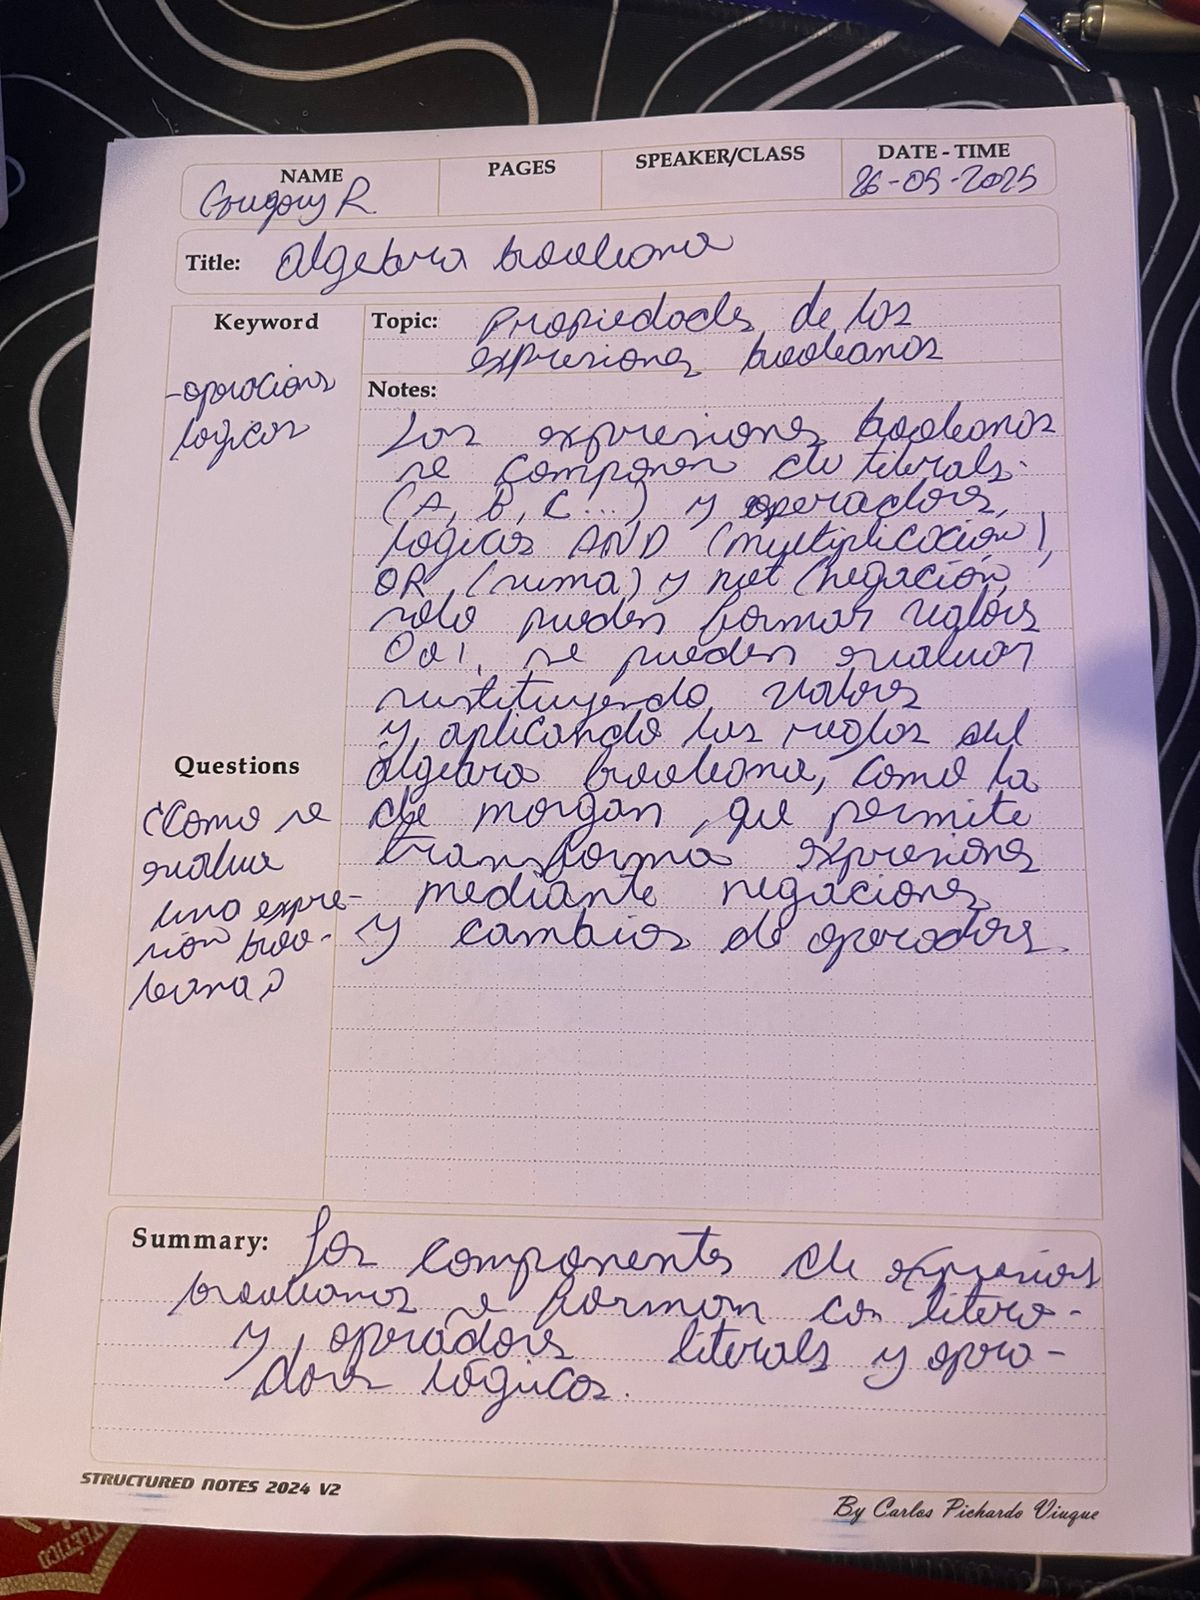 NAME
Gregory R.
PAGES
SPEAKER/CLASS
DATE - TIME
26-05-2025
Title: Algebra booleana
Keyword
- operaciones
logicas
Topic: Propiedades de las
expresiones booleanas
Notes:
Las expresiones booleanas
se componen de literales
(A, B, C...) y operadores
logicos AND (multiplicación),
OR (suma) y not (negación
solo pueden formar valores
0 o 1, se pueden evaluar
sustituyendo valores
y aplicando las reglas del
algebra booleana, como la
de morgan, que permite
transformas expresiones
mediante negaciones
y cambios de operadores.
Questions
¿Como se
evalua
una expre-
sión boo-
leana?
Summary: Los componentes de expresiones
booleanas se forman con litera-
y operadores literales y opera-
dores lógicos.
STRUCTURED NOTES 2024 V2
By Carlos Pichardo Viuque
ATLÉTICO